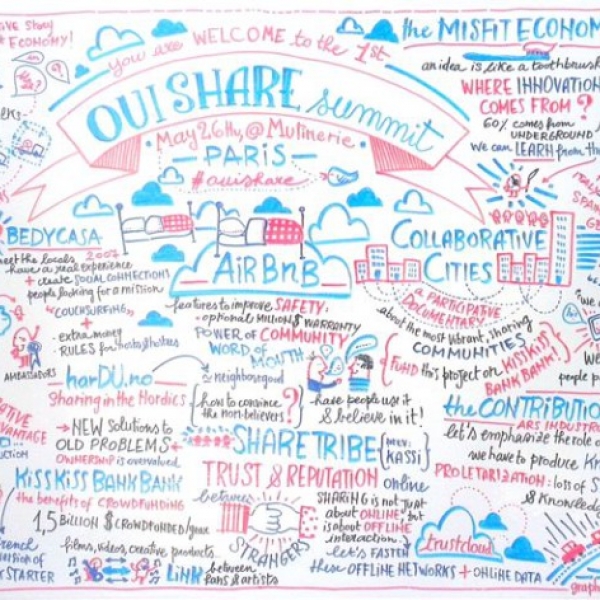 you are WELCOME to the 1st
OUISHARE summit
May 26th, @ Mutinerie
PARIS
#ouishare
the MISFIT ECONOM
an idea is like a toothbrush
WHERE INNOVATION
COMES FROM?
60% comes from
UNDERGROUND
We can LEARN from th
BEDYCASA
meet the locals 2007
have a real experience
+ create SOCIAL CONNECTIONS
people looking for a mission
"COUCHSURFING"
+
extra money
RULES for
AMBASSADORS
AiRBnB
features to improve SAFETY:
optional MILLION $ WARRANTY
POWER of COMMUNITY
WORD of MOUTH
neighborgood
how to convince
the non-believers?
have people use it
& believe in it!
COLLABORATIVE
CITIES
a PARTICIPATIVE
DOCUMENTARY
about the most vibrant, sharing
COMMUNITIES
FUND this project on KISSKISS
BANKBANK!
harDU.no
Sharing in the Nordics
NEW Solutions to
OLD PROBLEMS
OWNERSHIP is overvalued
SHARETRIBE
KASSI
TRUST & REPUTATION online
between
STRANGERS
SHARING is not just
about ONLINE but
is about OFFLINE
interaction.
let's FASTEN
these OFFLINE NETWORKS + ONLINE DATA
trustcloud
the CONTRIBUTIO
ARS INDUSTR
let's emphasize the role o
we have to produce Kn
PROLETARIZATION: loss of S
& Knowledg
KISSKISSBANKBANK
the benefits of CROWDFUNDING
1,5 BILLION $ CROWDFUNDED/year
films, videos, creative products
LiNK between
fans & artists
STARTER
ECONOMY!
graph